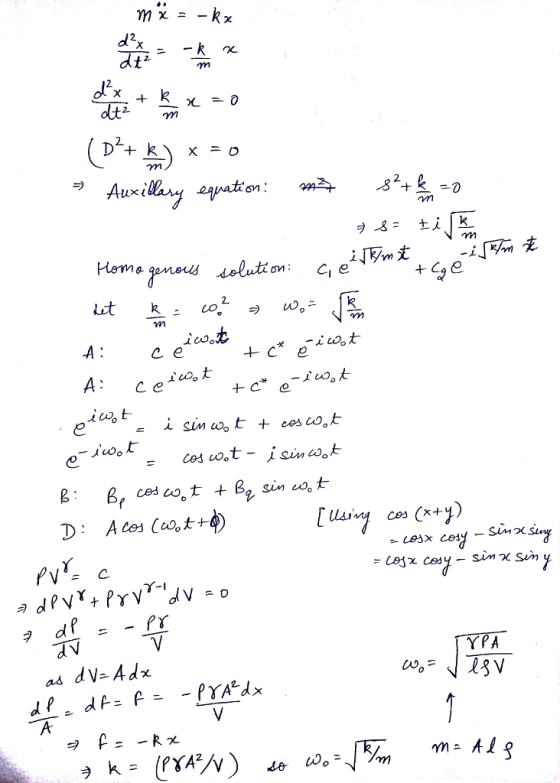 mẍ = -kx
d²x/dt² = -k/m x
d²x/dt² + k/m x = 0
(D² + k/m) x = 0
⇒ Auxillary equation: s² + k/m = 0
⇒ s = ±i√(k/m)
Homogenous solution: c₁ e^(i√(k/m) t) + c₂ e^(-i√(k/m) t)
Let k/m = ω₀² ⇒ ω₀ = √(k/m)
A: c e^(iω₀t) + c* e^(-iω₀t)
A: c e^(iω₀t) + c* e^(-iω₀t)
e^(iω₀t) = i sin ω₀t + cos ω₀t
e^(-iω₀t) = cos ω₀t - i sin ω₀t
B: Bₚ cos ω₀t + B_q sin ω₀t
D: A cos (ω₀t + ϕ) [Using cos (x+y)
= cosx cosy - sinx siny
= cosx cosy - sin x sin y
PV^γ = C
⇒ dPV^γ + PγV^(γ-1) dV = 0
⇒ dP/dV = - Pγ/V
as dV = A dx
dP/A = dF = F = - PγA² dx/V
⇒ F = -kx
⇒ k = (PγA²/V) so ω₀ = √(k/m)
ω₀ = √(γPA/lρV)
↑
m = A l ρ